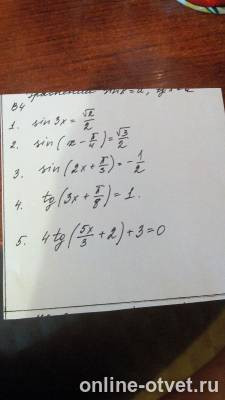 уравнений sin x = a, tg x = a
В4
1. sin 3x = √2/2
2. sin(x - π/4) = √3/2
3. sin(2x + π/3) = -1/2
4. tg(3x + π/8) = 1.
5. 4tg(5x/3 + 2) + 3 = 0
online-otvet.ru